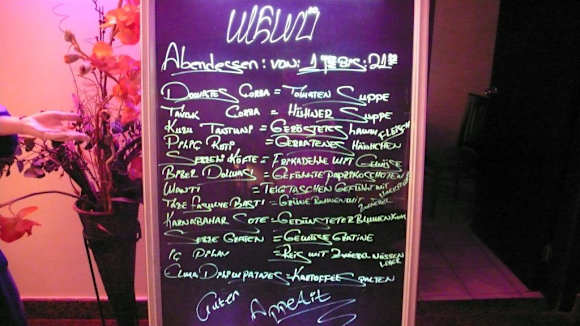 MENÜ
Abendessen: von: 19 Bis: 21
Domates Corba = Tomaten Suppe
Tavuk Corba = Hühner Suppe
Kuzu = Geröstetes Fleisch
Piliç Roti = Gebratenes Hähnchen
Sebzeli Köfte = Frikadelle mit Gemüse
Biber Dolmasi = Gefüllte Paprikaschoten
Manti = Teigtaschen Gefüllt mit
Taze Fasulye Basti = Grüne Bohnen mit
Karnabahar Sote = Gedünsteter Blumenkohl
Sebze Graten = Gemüse Gratine
Iç Pilav = Reis mit Nüssen Leber
Elma Dilim Patates = Kartoffel Spalten
Guten Appetit